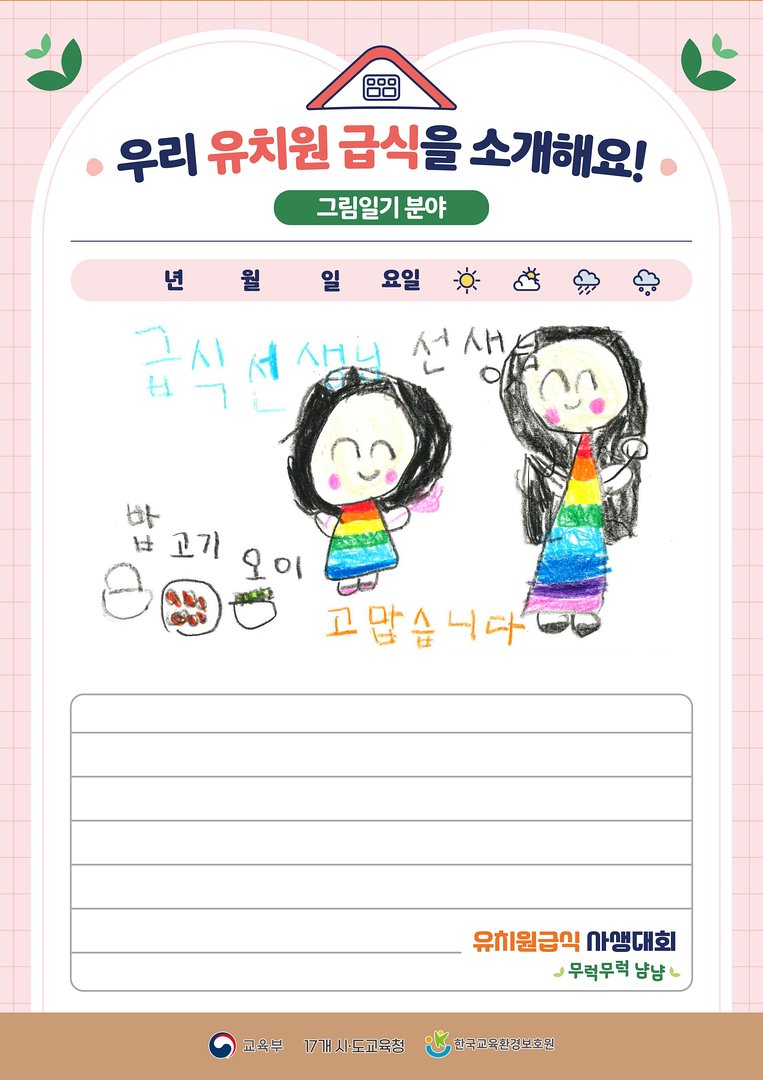 우리 유치원 급식을 소개해요!
그림일기 분야
년 월 일 요일
급식선생님 선생님
밥 고기 오이
고맙습니다
유치원급식 사생대회
무럭무럭 냠냠
교육부 17개 시·도교육청 한국교육환경보호원